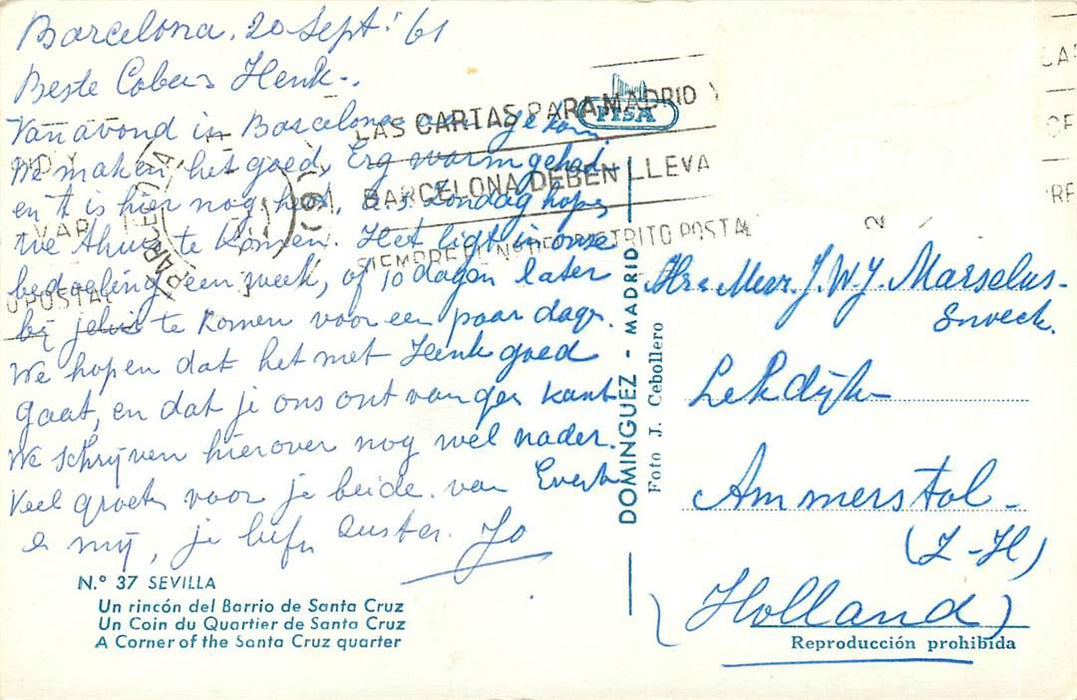 Barcelona, 20 Sept. '61
Beste Coba en Henk.
Van avond in Barcelona aan gekom.
We maken het goed, Erg warm gehad
en 't is hier nog heet, a.s. Zondag hopen
we thuis te komen. Het ligt in onze
bedoeling een week, of 10 dagen later
bij jelui te komen voor een paar dagen.
We hopen dat het met Henk goed
gaat, en dat je ons ontvangen kant
We schrijven hierover nog wel nader.
Veel groeten voor je beide van Evert
en mij, je liefh. Zuster. Jo
N.º 37 SEVILLA
Un rincón del Barrio de Santa Cruz
Un Coin du Quartier de Santa Cruz
A Corner of the Santa Cruz quarter
LAS CARTAS PARA MADRID Y
BARCELONA DEBEN LLEVAR
SIEMPRE EL Nº DE DISTRITO POSTAL
BARCELONA
FISA
DOMINGUEZ - MADRID
Foto J. Cebollero
Hr. Mevr. J. W. J. Marselus-
Snoeck.
Lekdijk
Ammerstol -
(Z-H)
(Holland)
Reproducción prohibida